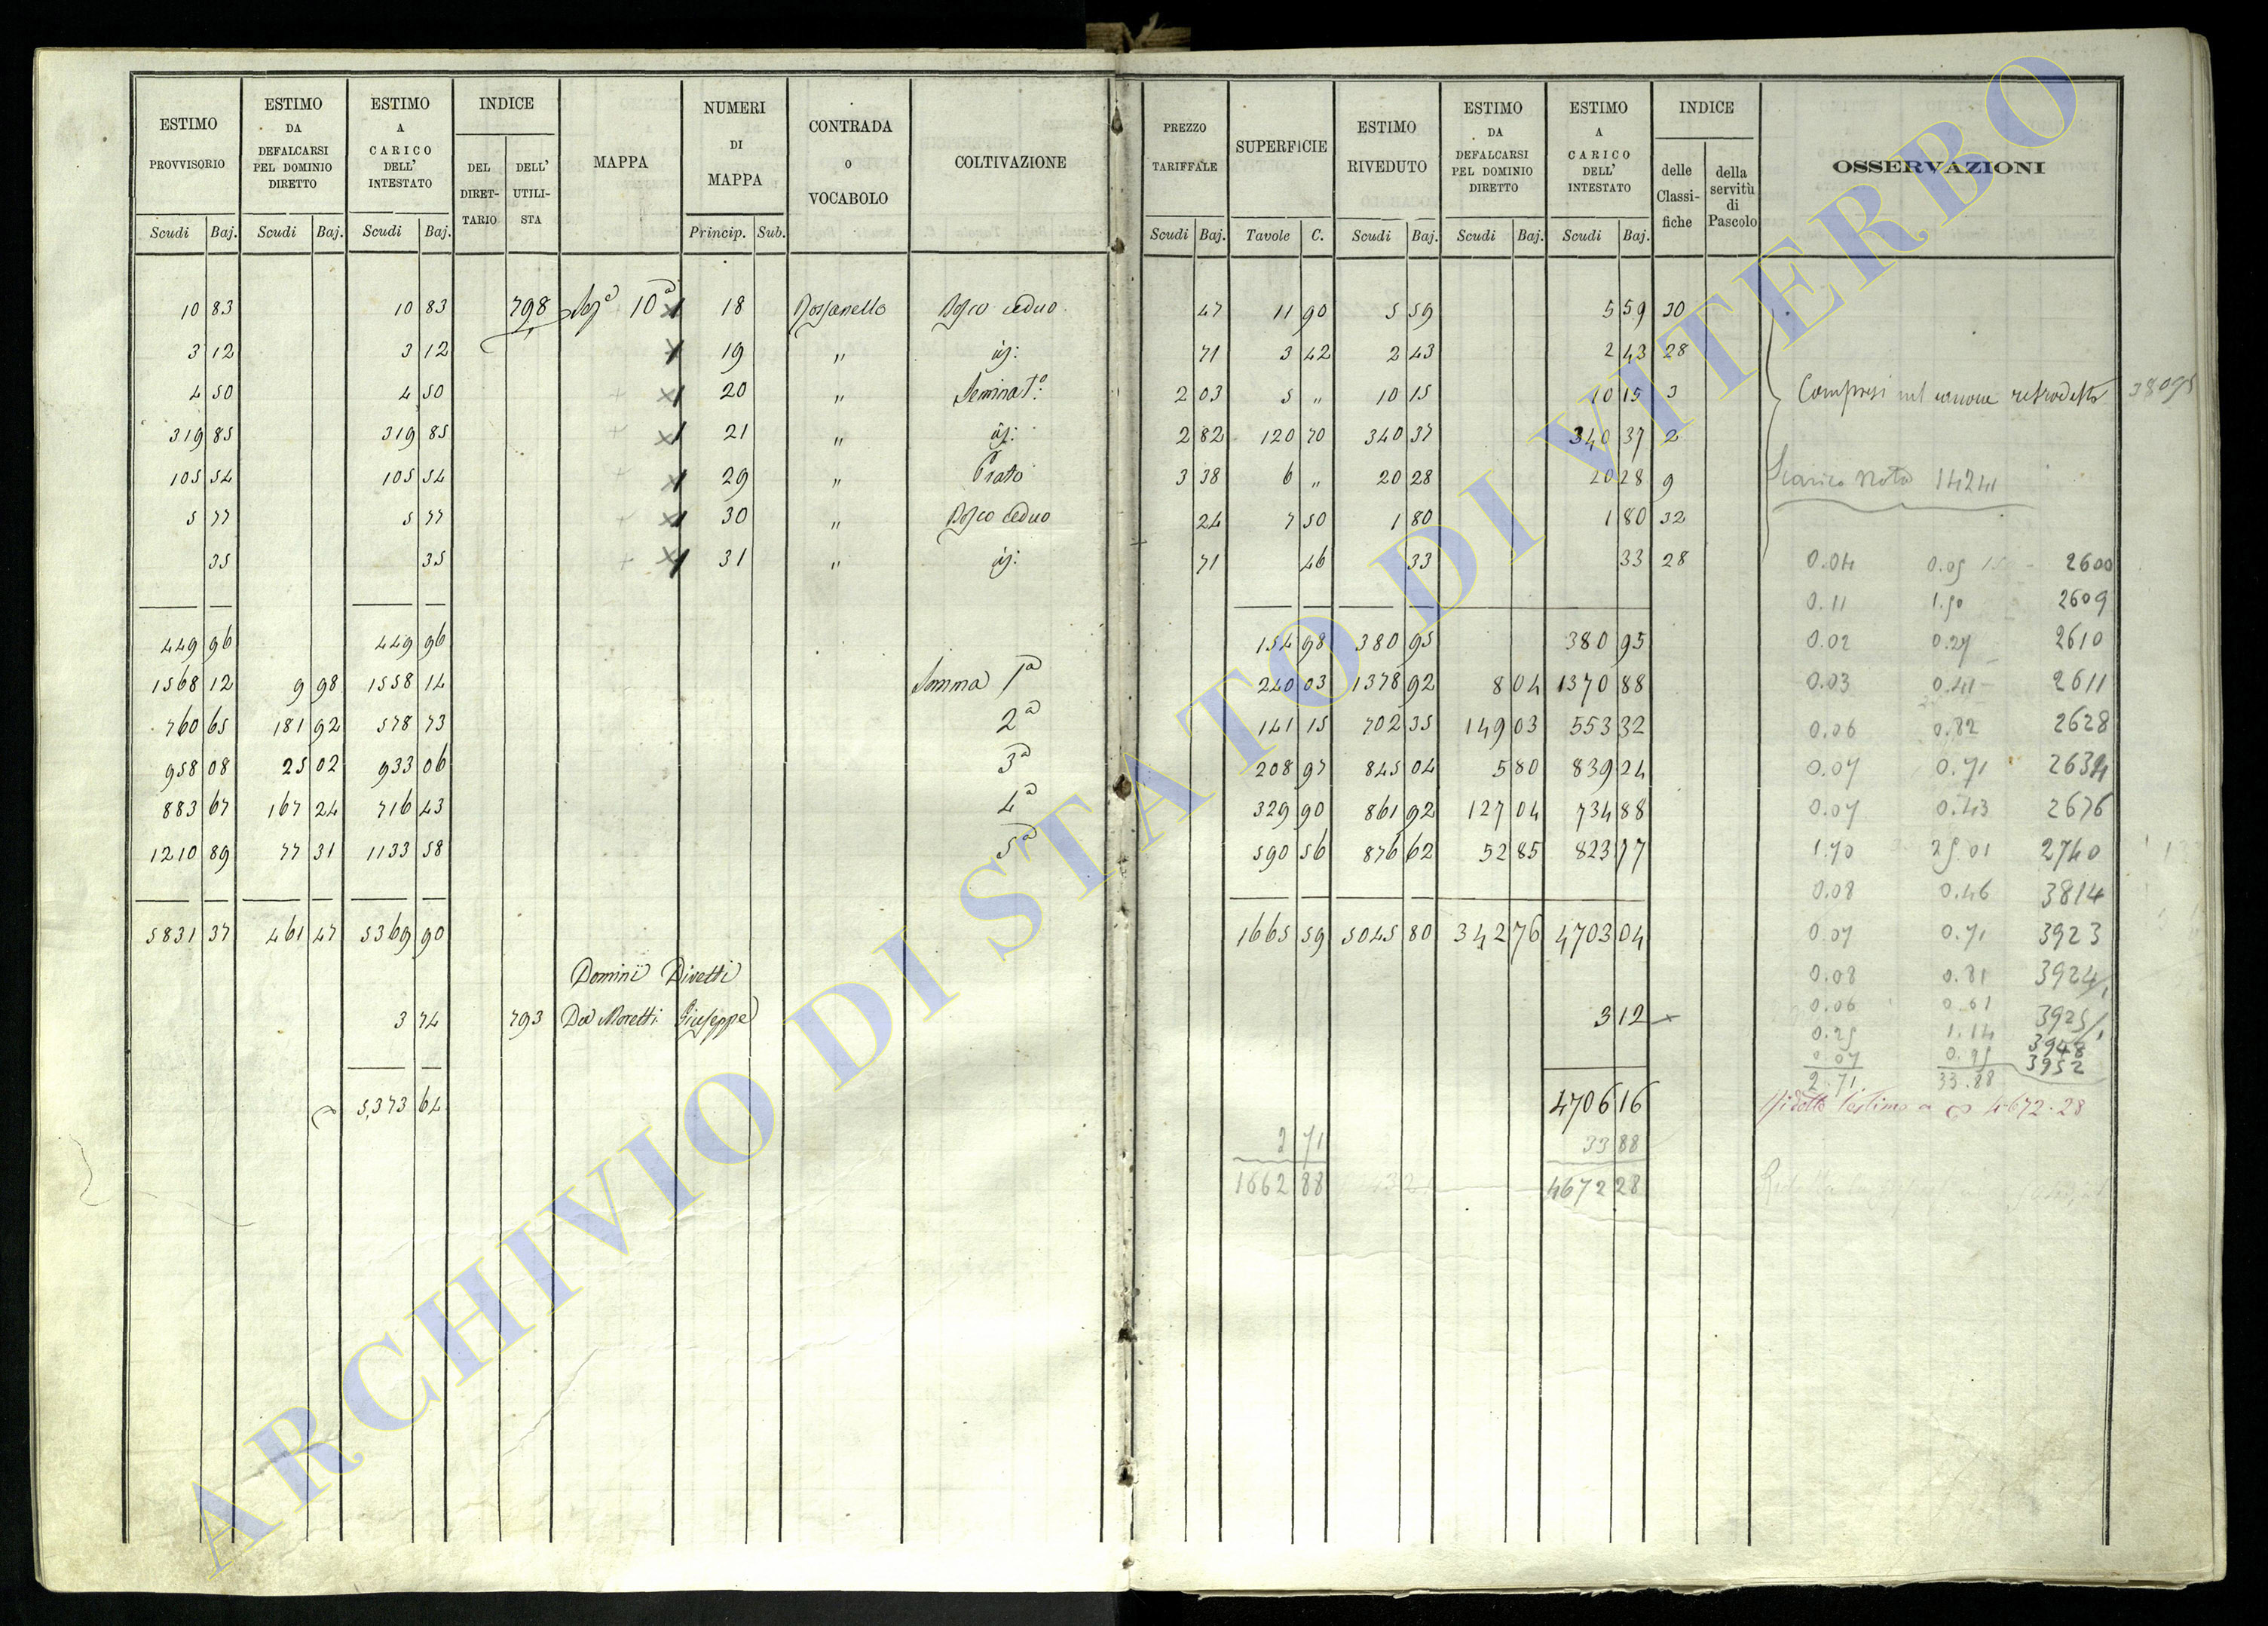 ESTIMO PROVVISORIO | ESTIMO DA DEFALCARSI PEL DOMINIO DIRETTO | ESTIMO A CARICO DELL' INTESTATO | INDICE DEL DIRET-TARIO | DELL' UTILI-STA | MAPPA | NUMERI DI MAPPA | CONTRADA o VOCABOLO | COLTIVAZIONE | PREZZO TARIFFALE | SUPERFICIE | ESTIMO RIVEDUTO | ESTIMO DA DEFALCARSI PEL DOMINIO DIRETTO | ESTIMO A CARICO DELL' INTESTATO | INDICE delle Classi-fiche | della servitù di Pascolo | OSSERVAZIONI
Scudi Baj. | Scudi Baj. | Scudi Baj. | Princip. Sub. | Scudi Baj. | Tavole C. | Scudi Baj. | Scudi Baj. | Scudi Baj.
10 83 | 10 83 | 798 | 10ª | 18 | Bosco ceduo | 47 | 11 90 | 5 59 | 5 59 | 30
3 12 | 3 12 | 19 | " | 71 | 3 42 | 2 43 | 2 43 | 28
4 50 | 4 50 | 20 | " | Seminatº | 2 03 | 5 " | 10 15 | 10 15 | 3 | Compresi nel canone retrodetto 380 95
319 85 | 319 85 | 21 | " | 2 82 | 120 70 | 340 37 | 340 37 | 2
105 54 | 105 54 | 29 | " | Prato | 3 38 | 6 " | 20 28 | 20 28 | 9 | Scarico Nota
5 77 | 5 77 | 30 | " | Bosco ceduo | 24 | 7 50 | 1 80 | 1 80 | 32
35 | 35 | 31 | " | 71 | 46 | 33 | 33 | 28 | 0.04 | 2600
0.11 | 1.50 | 2609
449 96 | 449 96 | 154 98 | 380 95 | 380 95 | 0.02 | 0.27 | 2610
1568 12 | 9 98 | 1558 14 | Somma 1ª | 240 03 | 1378 92 | 8 04 | 1370 88 | 0.03 | 0.41 | 2611
760 65 | 181 92 | 578 73 | 2ª | 141 15 | 702 35 | 149 03 | 553 32 | 0.06 | 0.82 | 2628
958 08 | 25 02 | 933 06 | 3ª | 208 97 | 845 04 | 5 80 | 839 24 | 0.07 | 0.71
883 67 | 167 24 | 716 43 | 4ª | 329 90 | 861 92 | 127 04 | 734 88 | 0.07 | 0.43 | 2676
1210 89 | 77 31 | 1133 58 | 5ª | 590 56 | 876 62 | 52 85 | 823 77 | 1.70 | 25.01 | 2740
0.08 | 0.46 | 3814
5831 37 | 461 47 | 5369 90 | 1665 59 | 5045 80 | 342 76 | 4703 04 | 0.07 | 0.71 | 3923
Dominii Diretti | 0.08 | 0.81 | 3924/1
3 74 | 793 | Da Moretti Giuseppe | 3 12 | 0.06 | 0.61 | 3925/1
0.25 | 1.14 | 3948
0.07 | 0.95 | 3952
2.71 | 33.88
5,373 64 | 4706 16 | l'estimo a 4672.28
2 71 | 33 88
1662 88 | 4672 28
ARCHIVIO DI STATO DI VITERBO